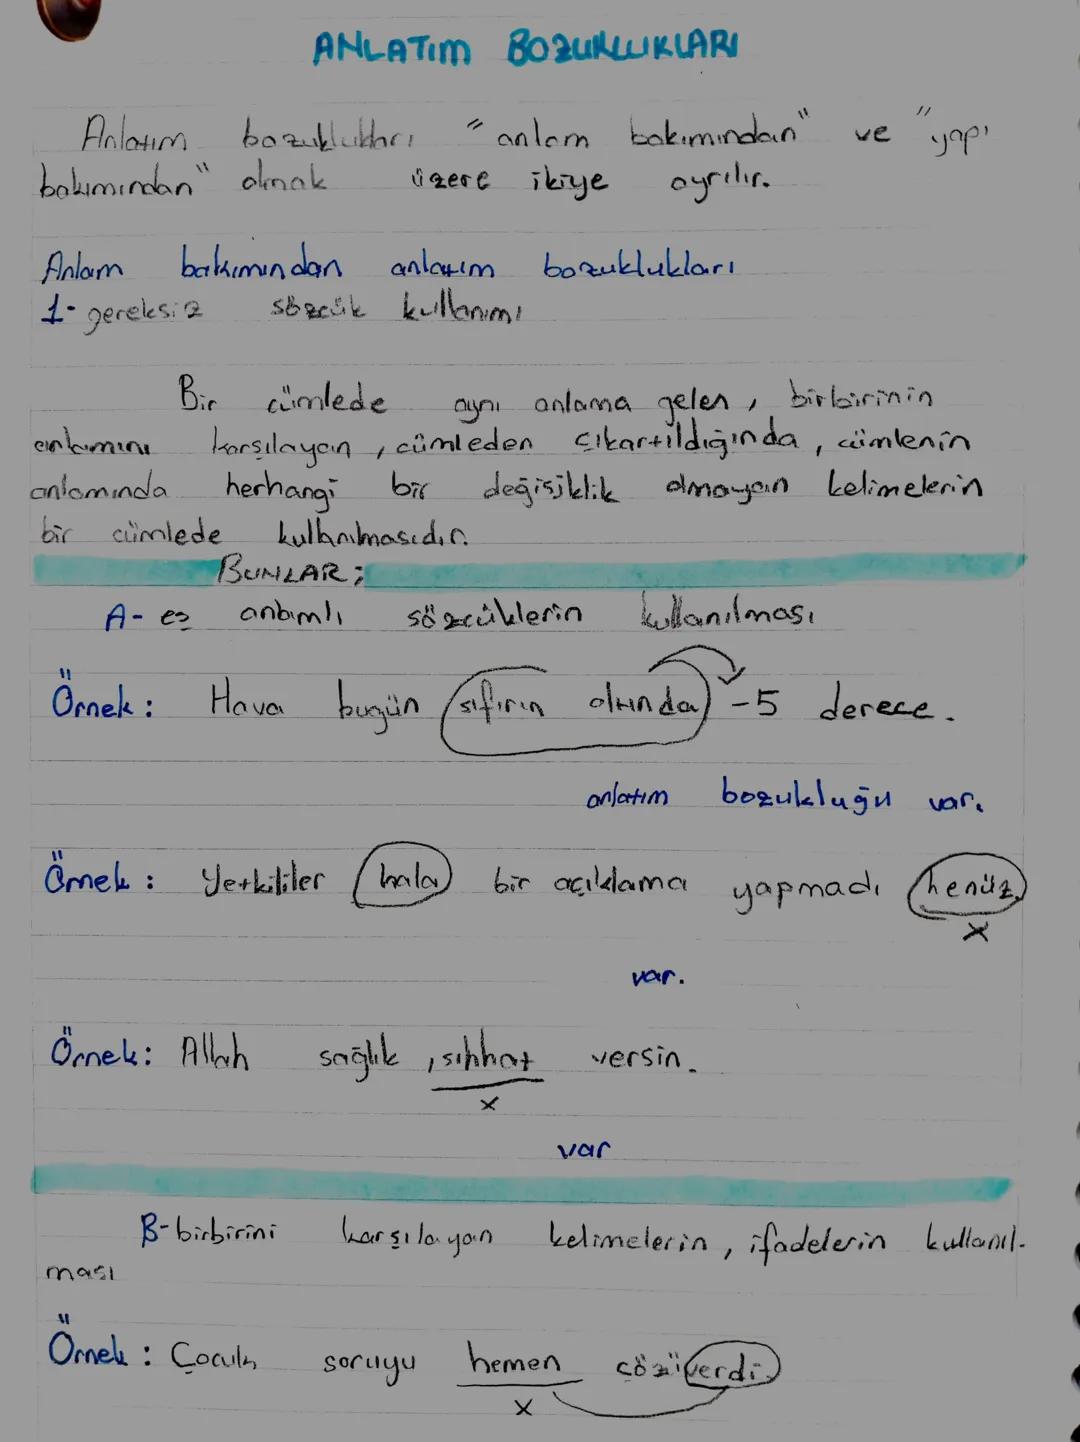 ANLATIM BOZUKLUKLARI
Anlatım bozuklukları "anlam bakımından" ve "yapı
bakımından" olmak üzere ikiye ayrılır.
Anlam bakımından anlatım bozuklukları
1- gereksiz sözcük kullanımı
Bir cümlede aynı anlama gelen, birbirinin
anlamını karşılayan, cümleden çıkartıldığında, cümlenin
anlamında herhangi bir değişiklik olmayan kelimelerin
bir cümlede kullanılmasıdır.
BUNLAR;
A- eş anlamlı sözcüklerin kullanılması
Örnek: Hava bugün sıfırın altında -5 derece.
anlatım bozukluğu var.
Örnek: Yetkililer hala bir açıklama yapmadı henüz.
x
var.
Örnek: Allah sağlık, sıhhat versin.
x
var
B- birbirini karşılayan kelimelerin, ifadelerin kullanıl-
ması
Örnek: Çocuk soruyu hemen çözüverdi.
x